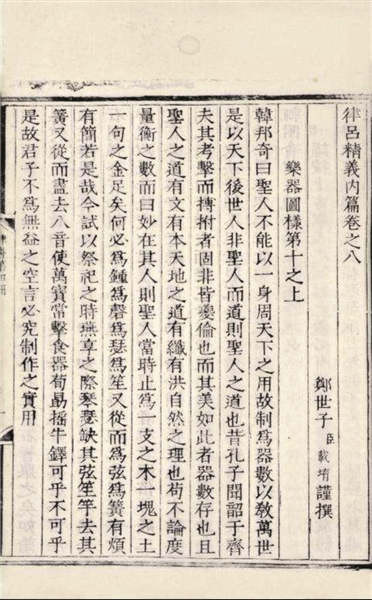 律呂精義內篇卷之八
鄭世子臣載堉謹撰
樂器圖樣第十之上
韓邦奇曰聖人不能以一身周天下之用故制為器數以教萬世
是以天下後世人非聖人而道則聖人之道也昔孔子聞韶于齊
夫其考擊而搏拊者固非皆夔倫也而其美如此者器數存也且
聖人之道有文有本天地之道有纖有洪自然之理也苟不論度
量衡之數而曰妙在其人則聖人當時止為一支之木一塊之土
一句之金足矣何必為鍾為磬為瑟為笙又從而為弦為簧有煩
有簡若是哉今試以祭祀之時燕享之際琴瑟缺其弦笙竽去其
簧又從而盡去八音使萬寶常擊食器荀勗摇牛鐸可乎不可乎
是故君子不為無益之空言必究制作之實用